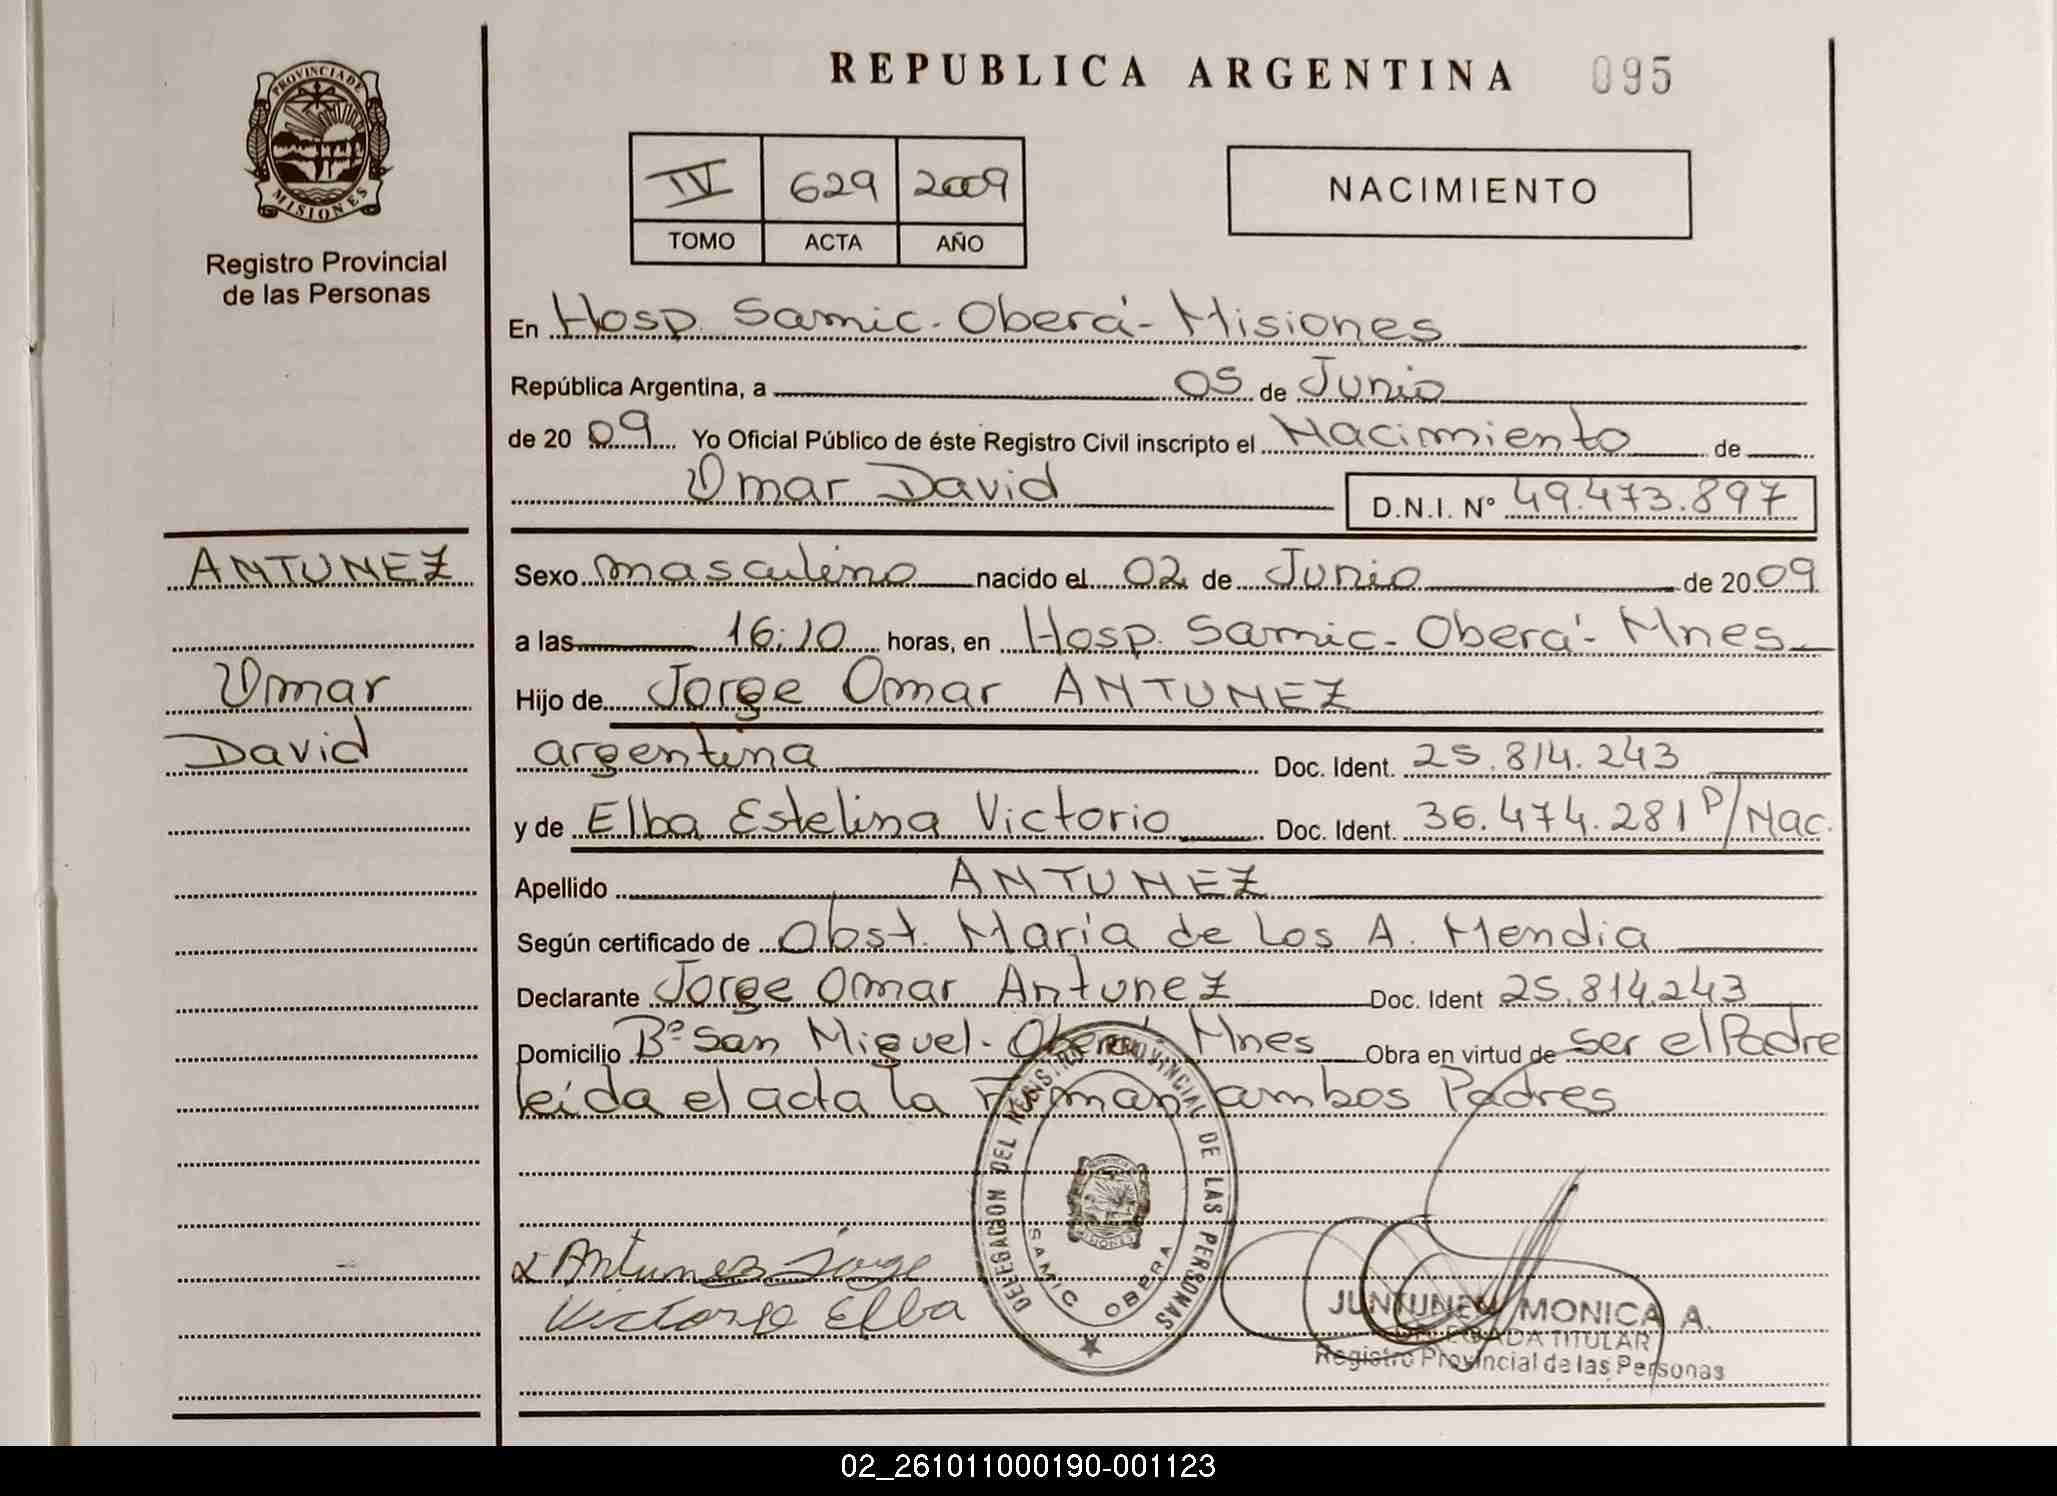 REPUBLICA ARGENTINA 095
PROVINCIA DE
MISIONES
Registro Provincial
de las Personas
IV 629 2009
TOMO ACTA AÑO
NACIMIENTO
En Hosp. Samic - Oberá - Misiones
República Argentina, a 05 de Junio
de 20 09 Yo Oficial Público de éste Registro Civil inscripto el Nacimiento de
Omar David D.N.I. Nº 49.473.897
ANTUNEZ
Omar
David
Sexo masculino nacido el 02 de Junio de 2009
a las 16:10 horas, en Hosp. Samic - Oberá - Mnes
Hijo de Jorge Omar ANTUNEZ
argentina Doc. Ident. 25.814.243
y de Elba Estelina Victorio Doc. Ident. 36.474.281 P/Nac.
Apellido ANTUNEZ
Según certificado de Obst. María de Los A. Mendia
Declarante Jorge Omar Antunez Doc. Ident 25.814.243
Domicilio Bº San Miguel - Oberá Mnes Obra en virtud de ser el Padre
leída el acta la Firman ambos Padres
DELEGACION DEL REGISTRO PROVINCIAL DE LAS PERSONAS
MISIONES
SAMIC OBERA
Antunez Jorge
Victorio Elba
JUNTUNEN MONICA A.
DELEGADA TITULAR
Registro Provincial de las Personas
02_261011000190-001123